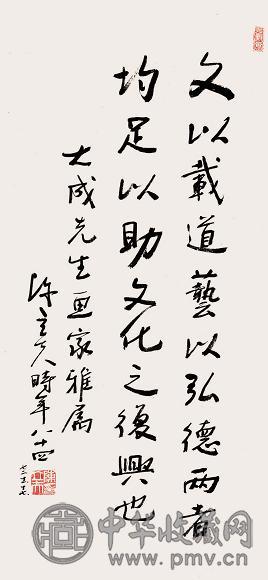 文以載道藝以弘德两者
均足以助文化之復興也
大成先生画家雅属
陳立夫時年八十四
七二、五、七
中华收藏网
www.pmv.cn